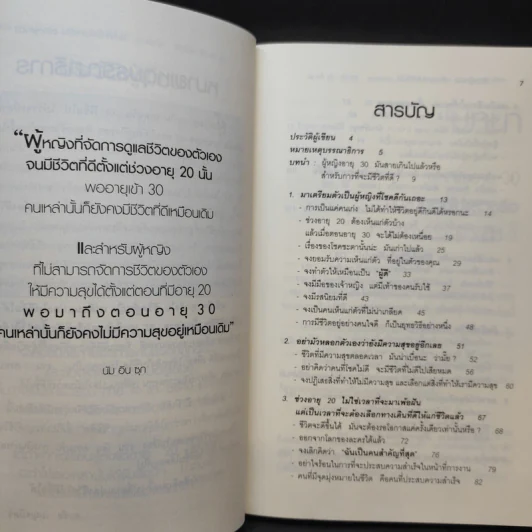 "ผู้หญิงที่จัดการดูแลชีวิตของตัวเอง
จนมีชีวิตที่ดีตั้งแต่ช่วงอายุ 20 นั้น
พออายุเข้า 30
คนเหล่านั้นก็ยังคงมีชีวิตที่ดีเหมือนเดิม
และสำหรับผู้หญิง
ที่ไม่สามารถจัดการชีวิตของตัวเอง
ให้มีความสุขได้ตั้งแต่ตอนที่มีอายุ 20
พอมาถึงตอนอายุ 30
คนเหล่านั้นก็ยังคงไม่มีความสุขอยู่เหมือนเดิม"
นัม อิน ซุก
7
สารบัญ
ประวัติผู้เขียน 4
หมายเหตุบรรณาธิการ 5
บทนำ : ผู้หญิงอายุ 30 มันสายเกินไปแล้วหรือ
สำหรับการที่จะมีชีวิตที่ดี ? 9
1. มาเตรียมตัวเป็นผู้หญิงที่โชคดีกันเถอะ 13
- การเป็นแค่คนเก่ง ไม่ได้ทำให้ชีวิตอยู่ดีกินดีได้หรอกนะ 14
- ช่วงอายุ 20 ต้องเห็นแก่ตัวบ้าง
แล้วเมื่อตอนอายุ 30 จะได้ไม่ต้องเหนื่อย 19
- เรื่องของโชคชะตานั้นน่ะ มันเก่าไปแล้ว 25
- จงยอมรับความเห็นแก่ตัว ที่อยู่ในตัวของคุณ 29
- จงทำตัวให้เหมือนเป็น "ผู้ดี" 33
- จงมีมือของเจ้าหญิง แต่มีเท้าของคนรับใช้ 37
- จงมีรสนิยมที่ดี 43
- จงเป็นคนเห็นแก่ตัวที่ไม่น่าเกลียด 45
- การมีชีวิตอยู่อย่างคนใจดี ก็เป็นยุทธวิธีอย่างหนึ่ง
2. อย่ามัวหลอกตัวเองว่ายังมีความสุขอยู่อีกเลย 51
- ชีวิตที่มีความสุขตลอดเวลา มันน่าเบื่อนะ ว่ามั้ย ? 52
- อย่าคิดว่าคนที่โชคไม่ดี จะมีชีวิตที่ไม่ดีไปเสียหมด 56
- จงปฏิเสธสิ่งที่ทำให้ไม่มีความสุข และเลือกแต่สิ่งที่ทำให้เรามีความสุข 60
3. ช่วงอายุ 20 ไม่ใช่เวลาที่จะมาเพ้อฝัน
แต่เป็นเวลาที่จะต้องเลือกทางเดินที่ดีให้แก่ชีวิตแล้ว 67
- ชีวิตจะดีขึ้นได้ มันจะต้องรอโอกาสแค่ครั้งเดียวเท่านั้นหรือ ? 68
- ออกจากโลกของละครได้แล้ว 72
- จงเลิกคิดว่า "ฉันเป็นคนสำคัญที่สุด" 76
- อย่าใจร้อนในการที่จะประสบความสำเร็จในหน้าที่การงาน 79
- คนที่มีจุดมุ่งหมายในชีวิต คือคนที่ประสบความสำเร็จ 82